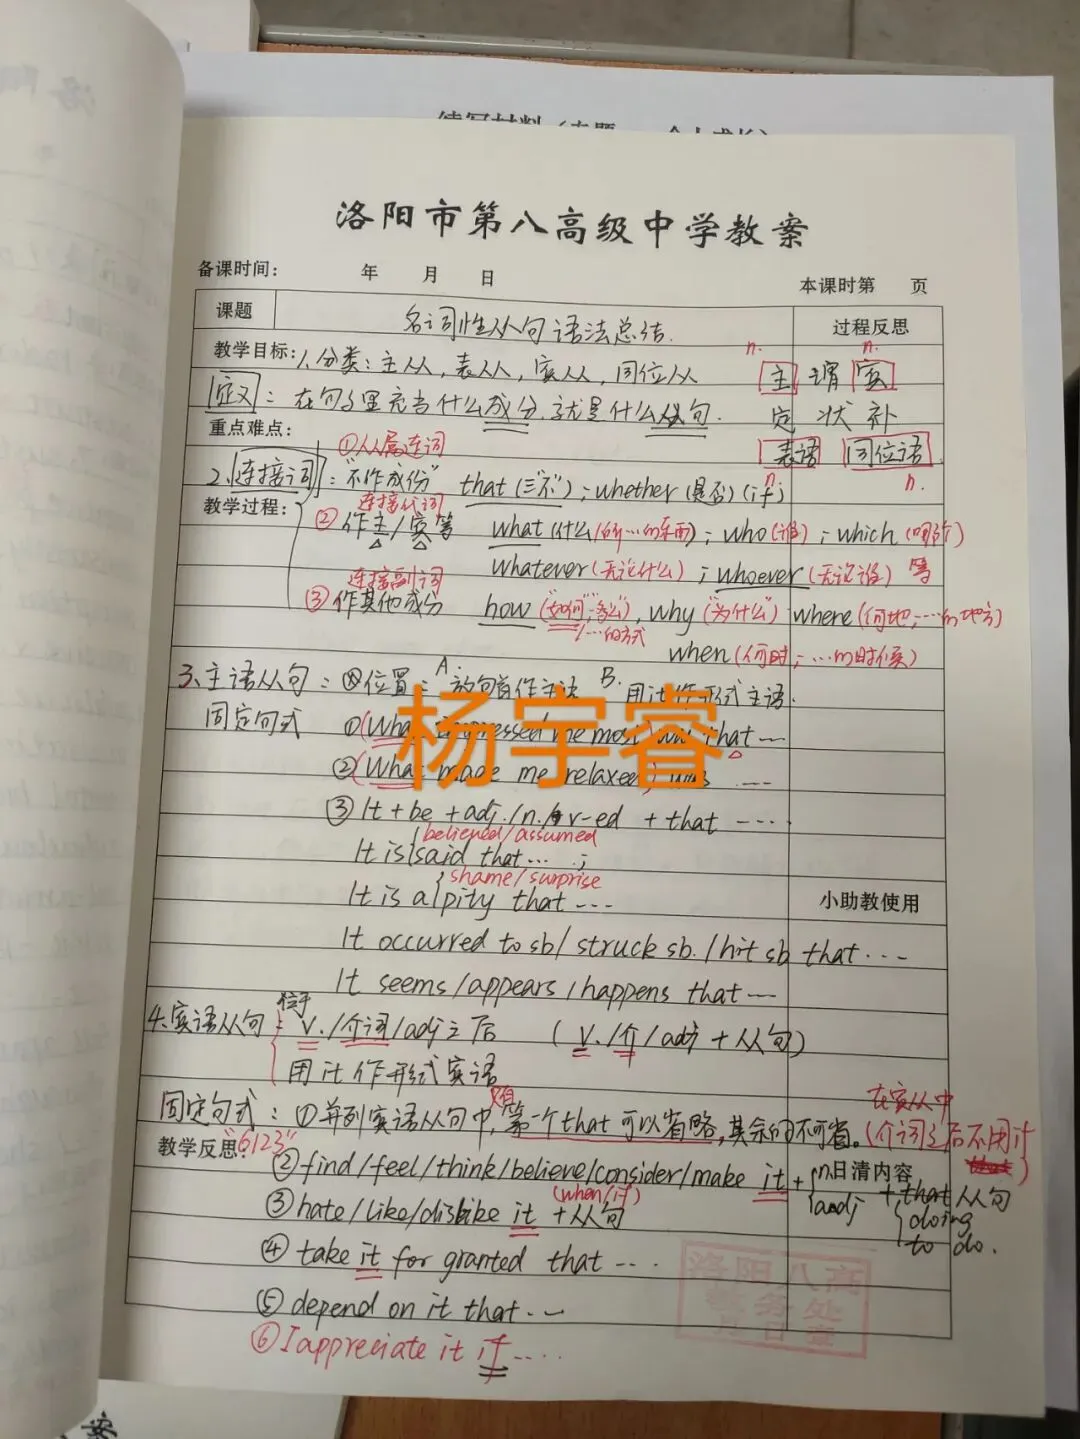 洛阳市第八高级中学教案
备课时间: 年 月 日
本课时第 页
课题 名词性从句语法总结. 过程反思
教学目标: 1、分类: 主从, 表从, 宾从, 同位从
n. n.
主 谓 宾
定义: 在句子里充当什么成分, 就是什么从句.
定 状 补
重点难点:
表语 同位语
n. n.
①从属连词
2.连接词: "不作成份" that (三不"); whether (是否) (if)
教学过程:
连接代词
②作主/宾等 what (什么/所…的东西); who (谁); which (哪个)
whatever (无论什么); whoever (无论谁) 等
连接副词
③作其他成分 how ("如何";多么"), why ("为什么") where (何地;…的地方)
/…的方式
when (何时; …的时候)
3.主语从句: 位置: A.放句首作主语 B.用it作形式主语.
固定句式 ① (What impressed me most) was that ---
② (What made me relaxed) was ---
③ It + be + adj./n./v-ed + that ---
believed/assumed
It is said that… ;
shame/surprise
It is a pity that ---
小助教使用
It occurred to sb/ struck sb. /hit sb that ---
It seems/appears/happens that ---
4.宾语从句: 位于 V./介词/adj之后 (V./介/adj + 从句)
用it作形式宾语
固定句式: ①并列宾语从句中, 只有第一个that可以省略, 其余的不可省. (介词之后不用if)
在宾从中
教学反思: "6123"
日清内容
②find/feel/think/believe/consider/make it + n. adj + that从句
doing
to do.
(when/if)
③hate/like/dislike it + 从句
④ take it for granted that ---.
⑤ depend on it that ---
⑥ I appreciate it if ....
洛阳八高
杨宇睿